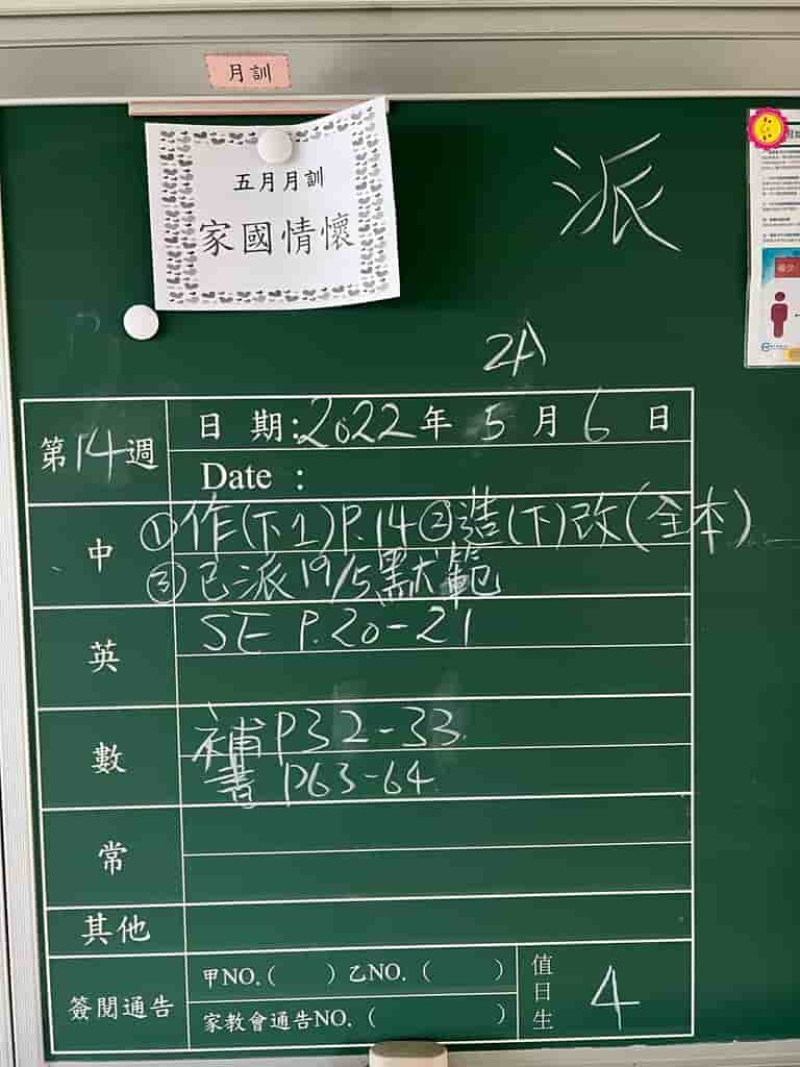 月訓
五月月訓
家國情懷
派
2A
第14週
日 期:2022年 5 月 6 日
Date :
中
①作(下1)P.14②造(下)改(全本)
③已派19/5默範
英
SE P.20-21
數
補P32-33
書 P63-64
常
其他
簽閱通告
甲NO.( )乙NO. ( )
家教會通告NO. ( )
值日生
4